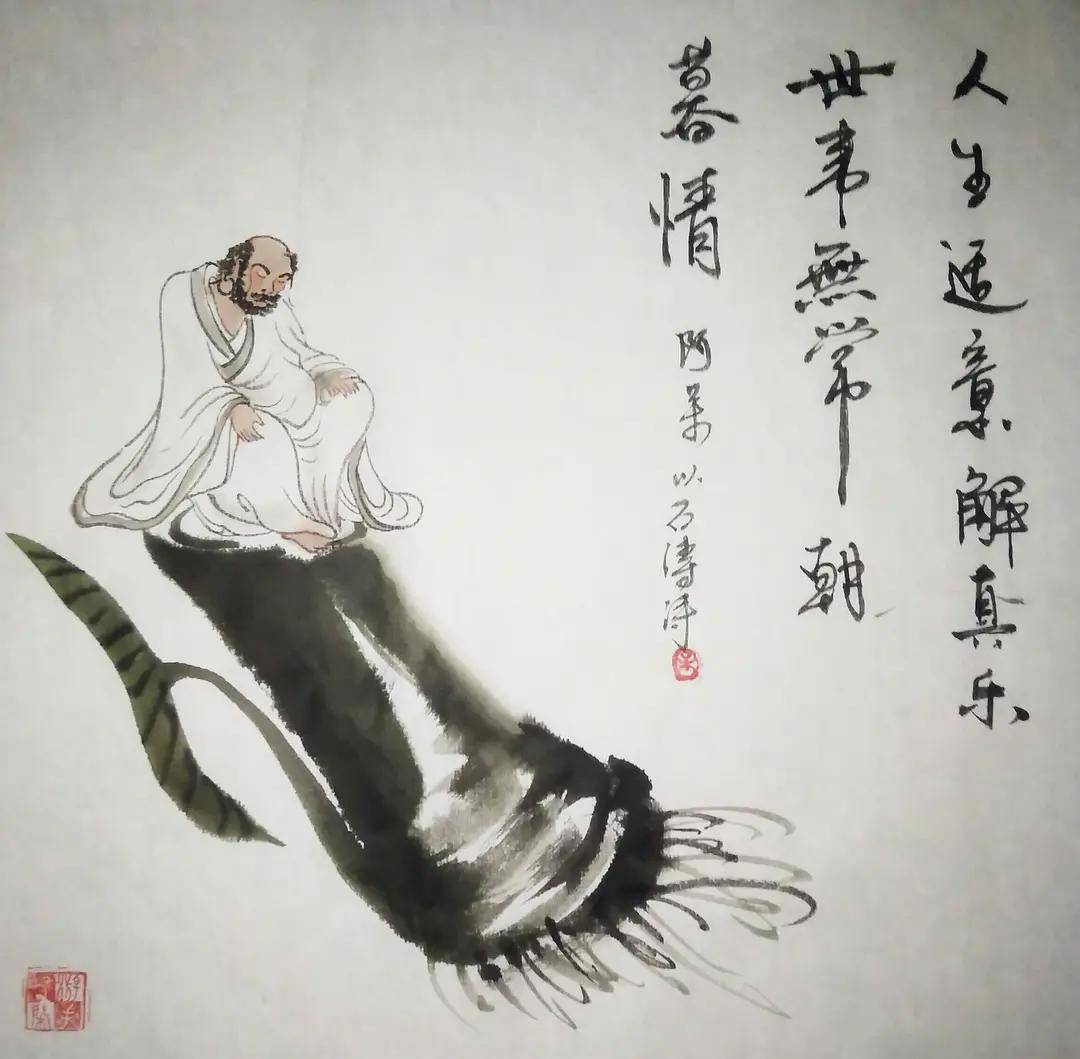 人生适意解真乐
世事無常朝
暮情 阿呆 以石濤诗